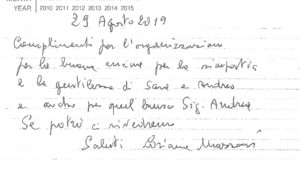 MONTH
YEAR 2010 2011 2012 2013 2014 2015
29 Agosto 2019
Complimenti per l'organizzazione
per la buona cucina per la simpatia
e la gentilezza di Sara e Andrea
e anche per quel buon Sig. Andrea
Se potrò ci rivedremo
Saluti